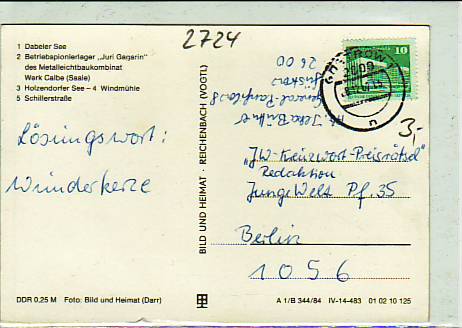 2724
1 Dabeler See
2 Betriebspionierlager „Juri Gagarin"
des Metalleichtbaukombinat
Werk Calbe (Saale)
3 Holzendorfer See – 4 Windmühle
5 Schillerstraße
Lösungswort:
Wunderkerze
BILD UND HEIMAT · REICHENBACH (VOGTL)
2600
10
n
3,-
„JW-Kreuzwort-Preisrätsel"
Redaktion
Junge Welt Pf. 35
Berlin
1056
DDR 0,25 M Foto: Bild und Heimat (Darr)
A 1/B 344/84 IV-14-483 01 02 10 125